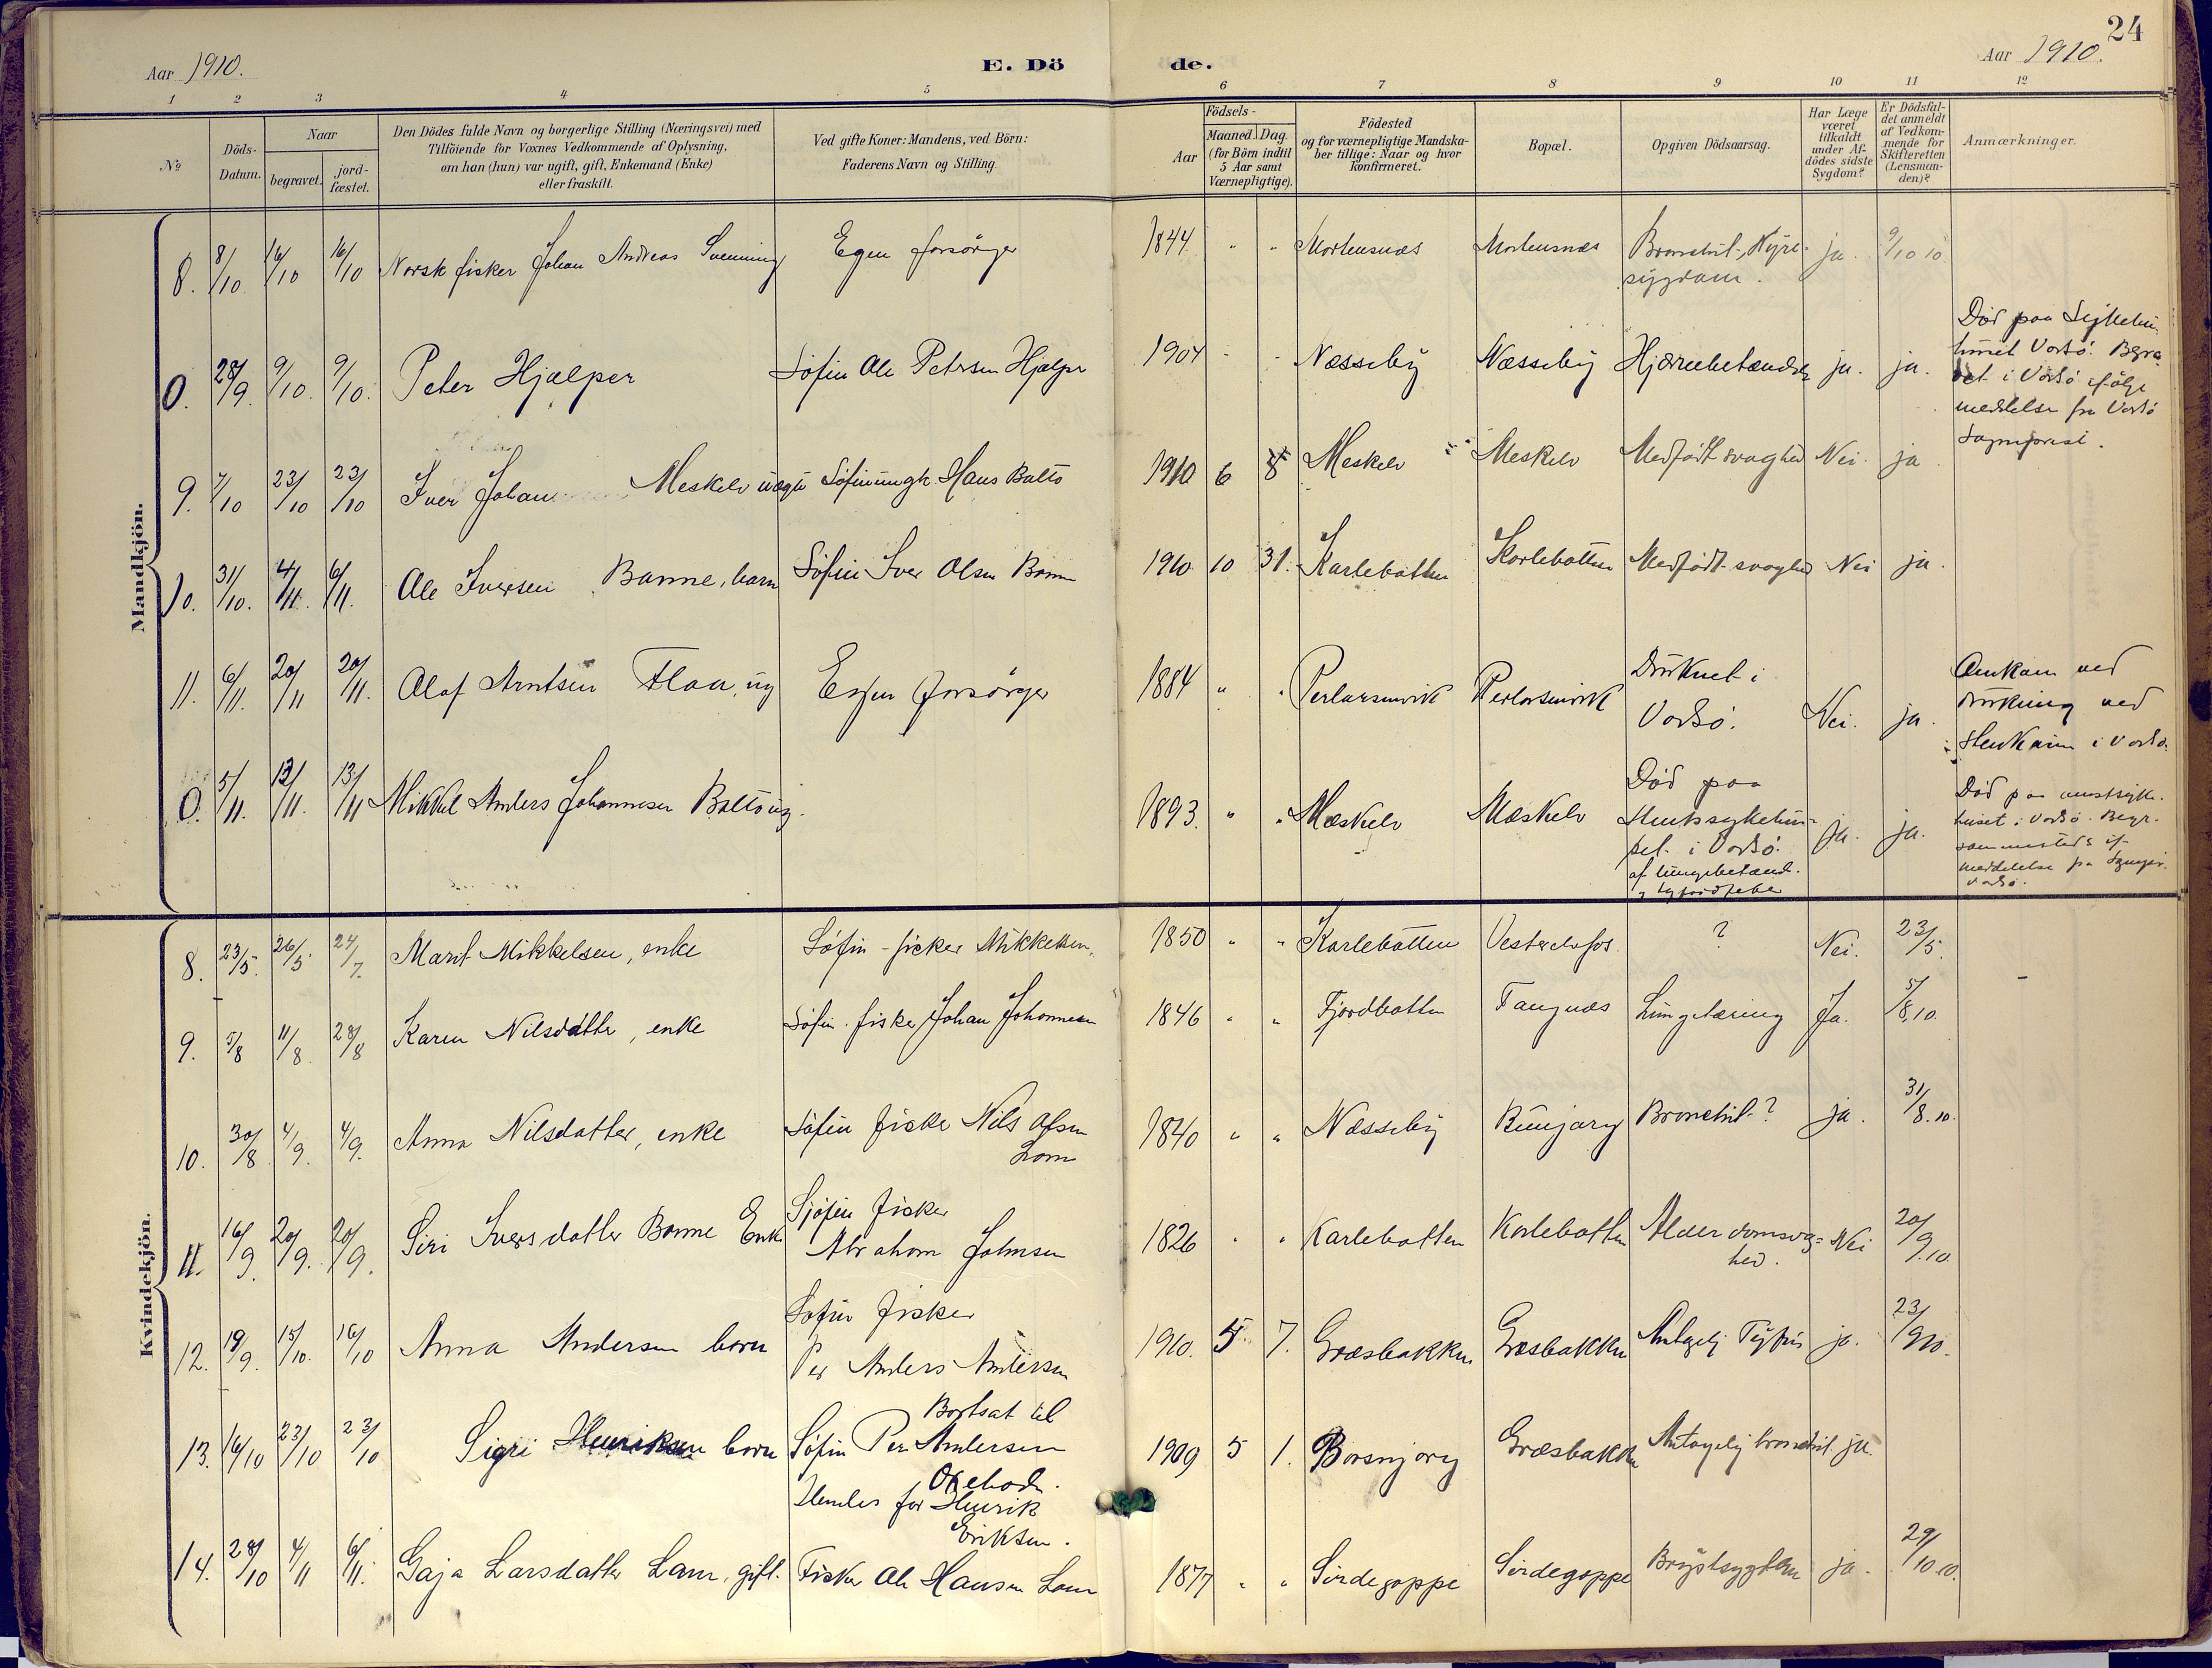 24
Aar 1910.
E. Döde.
Aar 1910.
1 2 3 4 5 6 7 8 9 10 11 12
№
Döds-Datum.
Naar
begravet.
jord-fæstet.
Den Dödes fulde Navn og borgerlige Stilling (Næringsvei) med
Tilföiende for Voxnes Vedkommende af Oplysning,
om han (hun) var ugift, gift, Enkemand (Enke)
eller fraskilt.
Ved gifte Koner: Mandens, ved Börn:
Faderens Navn og Stilling.
Födsels-
Aar
Maaned. Dag.
(for Börn indtil
5 Aar samt
Værnepligtige).
Födested
og for værnepligtige Mandska-
ber tillige: Naar og hvor
konfirmeret.
Bopæl.
Opgiven Dödsaarsag.
Har Læge
været
tilkaldt
under Af-
dödes sidste
Sygdom?
Er Dödsfal-
det anmeldt
af Vedkom-
mende for
Skifteretten
(Lensman-
den)?
Anmærkninger.
Mandkjön.
8. 8/10 16/10 16/10 Norsk fisker Johan Andreas Svenning Egen forsörger 1844 " " Mortensnæs Mortensnæs Bronchit-, Nyre-
sygdom. ja. 9/10 10
0. 28/9. 9/10. 9/10. Peter Hjælper Söfin Ole Petersen Hjælper 1904 " " Næsseby Næsseby Hjærnebetændelse ja. ja.
Död paa Sykehu-
huset Vadsö. Begra-
vet i Vadsö ifölge
meddelse fra Vadsö
Sogneprest.
9. 7/10 23/10 23/10 Iver Johan Meskelv uægte Söfin ungk. Hans Balto 1910 6 8 Meskelv Meskelv Medfödt svaghed Nei. ja
10. 31/10. 4/11. 6/11. Ole Iversen Banne, barn Söfin Iver Olsen Banne 1910 10 31. Karlebotten Karlebotten Medfödt svaghed Nei ja.
11. 6/11. 20/11 20/11. Olaf Arntsen Flaa, ug Egen forsörger 1884 " " Perlarsenvik Perlarsenvik Druknet i
Vadsö. Nei. ja.
Omkom ved
drukning ved
i Vadsö.
0. 5/11. 13/11. 13/11 Mikkel Anders Johannesen Balto ug. 1893. " " Mæskelv Mæskelv Död paa
Amtssykehu-
set i Vadsö.
af lungebetænd.
og tyfoidfeber ja. ja.
Död paa amtssyke-
huset i Vadsö. Begr.
sammesteds if.
meddelelse fra Sognepr.
Vadsö.
Kvindekjön.
8. 23/5. 26/5 24/7. Marit Mikkelsen, enke Söfin - fisker Mikkelsen. 1850 " " Karlebotten Vesterelvfos. ? Nei. 23/5.
9. 5/8 11/8. 28/8 Karen Nilsdatter, enke Söfin. fisker Johan Johannesen 1846 " " Fjordbotten Fangnæs Lungetæring Ja. 5/8.10.
10. 30/8 4/9. 4/9. Anna Nilsdatter, enke Söfin fisker Nils Olsen
Lom 1840 " " Næsseby Bunjarg Bronchit ? ja. 31/8.10.
11. 16/9. 20/9. 20/9. Siri Iversdatter Banne Enke Sjöfin fisker
Abraham Johnsen 1826 " " Karlebotten Karlebotten Alderdomsvag-
hed. Nei 20/9.10.
12. 19/9. 15/10. 16/10 Anna Andersen barn Söfin fisker
Per Anders Andersen 1910. 5 7. Græsbakken Græsbakken Antagelig Tyfus ja. 23/9 10.
13. 16/10 23/10 23/10 Sigri Henriksen barn Bortsat til
Söfin Per Andersen
Henrik
Eriksen. 1909 5 1. Borsnjarg Græsbakken Antagelig bronchit. ja.
14. 28/10 4/11 6/11. Gaja Larsdatter Lam, gift. Fisker Ole Hansen Lam 1877 " " Sirdegoppe Sirdegoppe Brystsygdom ja. 29/10 10.